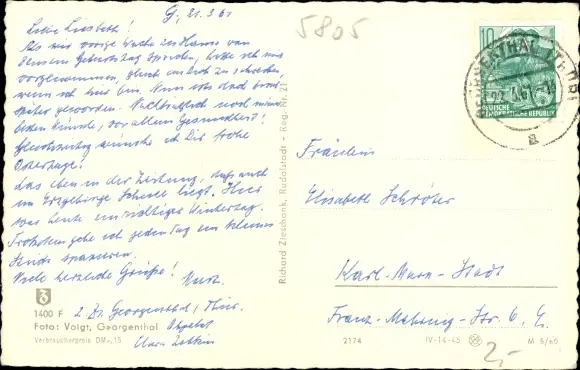 G., 21.3.61
5805
Liebe Liesbeth!
Als wir vorige Woche zu Hause von
Deinem Geburtstag sprachen, hatte ich mir
vorgenommen, gleich an Dich zu schreiben,
wenn ich hier bin. Nun ists doch etwas
später geworden. Nachträglich noch meine
besten Wünsche, vor allem Gesundheit!
Gleichzeitig wünsche ich Dir frohe
Ostertage!
las eben in der Zeitung, daß auch
im Erzgebirge Schnee liegt. Hier
war heute ein richtiger Wintertag.
Trotzdem gehe ich jeden Tag ein kleines
Stück spazieren.
Viele herzliche Grüße!
1400 F
z. Zt. Georgenthal, Thür.
Foto: Voigt, Georgenthal
Verbraucherpreis DM -,15
Clara Zetkin
Richard Zieschank, Rudolstadt - Reg.-Nr. 21
10
DEUTSCHE
DEMOKRATISCHE REPUBLIK
GEORGENTHAL (THÜR)
a
Fräulein
Elisabeth Schröter
Karl-Marx-Stadt
Franz-Mehring-Str. 6
2174
IV-14-45
M 5/60
2,-